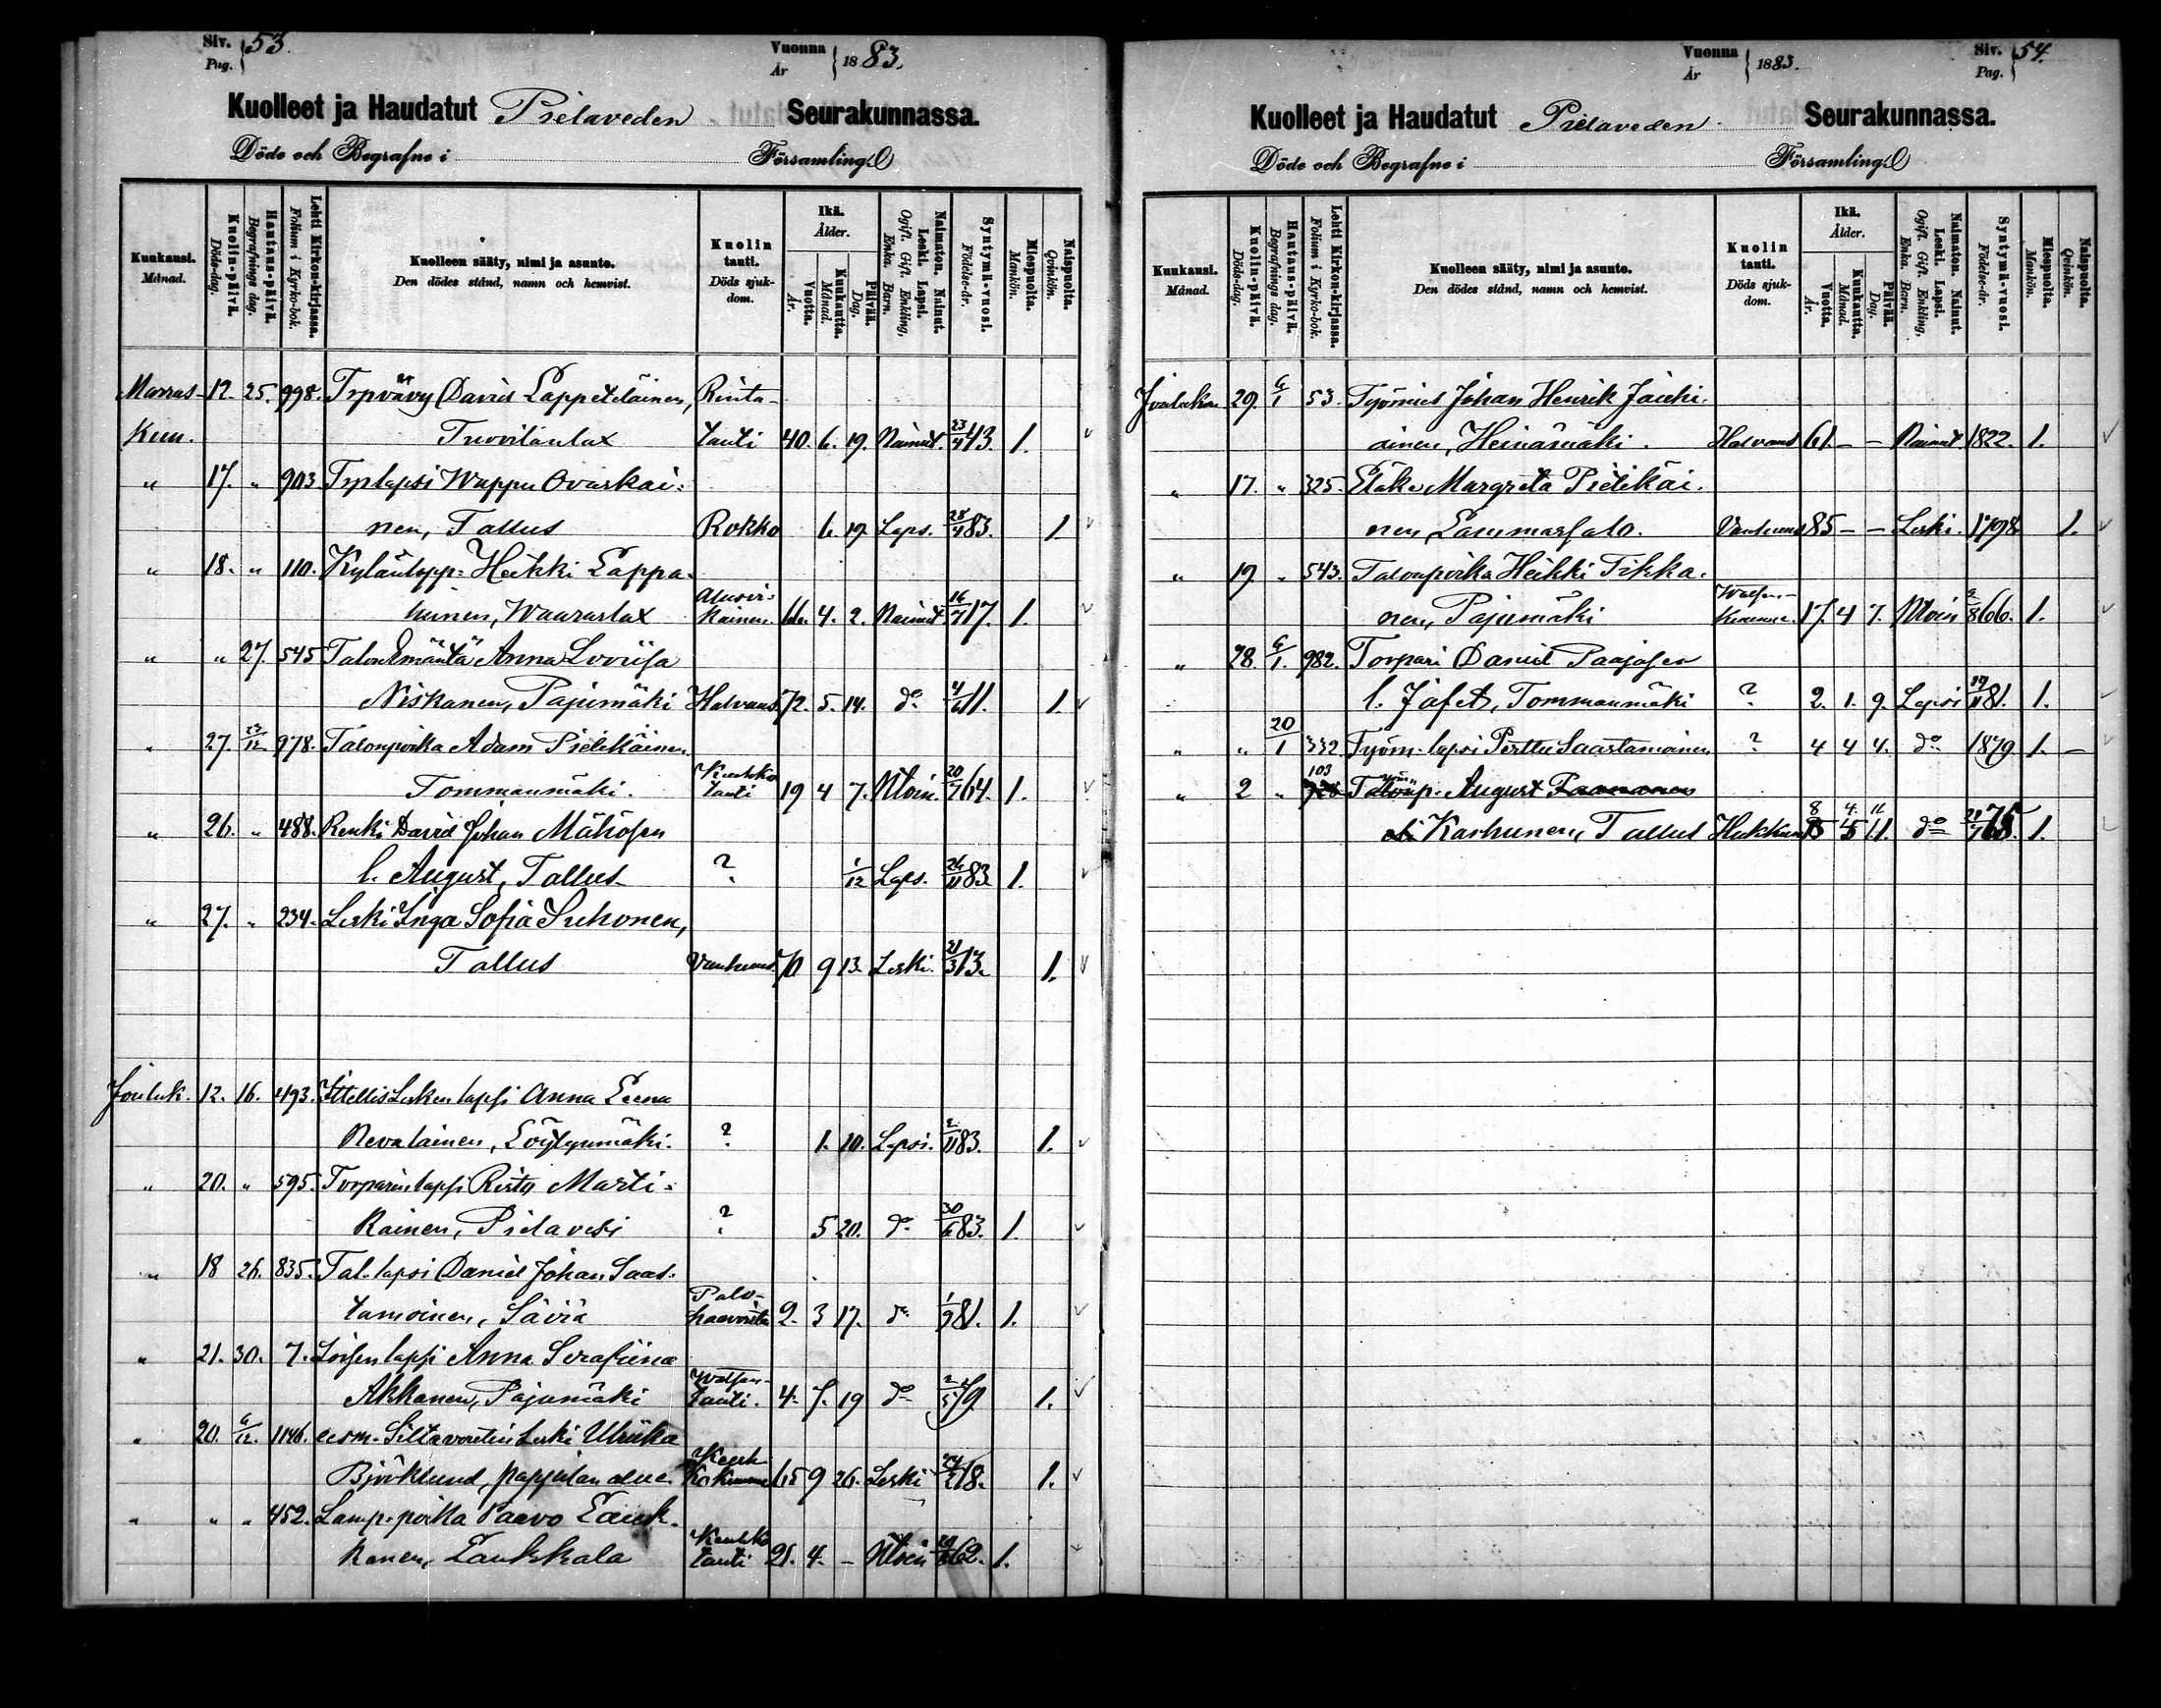 Siv. Pag. 53. Vuonna År 1883.
Kuolleet ja Haudatut Pielaveden Seurakunnassa.
Döde och Begrafne i Församling.
Kuukausi. Månad.
Kuolin-päivä. Döds-dag.
Hautaus-päivä. Begrafnings dag.
Lehti Kirkon-kirjassa. Folium i Kyrko-bok.
Kuolleen sääty, nimi ja asunto. Den dödes stånd, namn och hemvist.
Kuolin tauti. Döds sjukdom.
Ikä. Ålder.
Vuotta. År.
Kuukautta. Månad.
Päivää. Dag.
Naimaton. Nainut. Leski. Lapsi. Ogift. Gift. Enkling, Enka. Barn.
Syntymä-vuosi. Födelse-år.
Miespuolta. Mankön.
Naispuolta. Qvinkön.
Marras- 12. 25. 998. Trpvävy David Lappeteläinen, Rinta-
Kuu. Tuovilanlax tauti 40. 6. 19. Nainut. 23/4 43. 1.
" 17. " 903. Trplapsi Wappu Ovaskai-
nen, Tallus Rokko 6. 19. Laps. 28/4 83. 1.
" 18. " 110. Kylänlopp: Heikki Lappa-
lainen, Waaraslax 66. 4. 2. Nainut 16/7 17. 1.
" " 27. 545 Talon Emäntä Anna Loviisa
Niskanen, Pajumäki Halvaus 72. 5. 14. do 4/6 11. 1.
" 27. 23/12 978. Talonpoika Adam Pietikäinen
Tommanmäki. Keuhko tauti 19 4 7. Ntoin. 20/7 64. 1.
" 26. " 488. Renki David Johan Mähösen
l. August, Tallus ? 1/12 Laps. 26/11 83 1.
" 27. " 234. Leski Inga Sofia Suhonen,
Tallus Vanhuus 70 9 13. Leski. 21/3 13. 1.
Jouluk. 12. 16. 493. Ittellis Lesken lapsi Anna Leena
Nevalainen, Löytynmäki. ? 1. 10. Lapsi. 2/11 83. 1.
" 20. " 595. Torparin lapsi Risto Marti-
kainen, Pielavesi ? 5 20. do 30/6 83. 1.
" 18 26. 835. Tal. lapsi Daniel Johan Saas-
tamoinen, Säviä Palo- haavoista 2. 3 17. do 1/9 81. 1.
" 21. 30. 7. Loisen lapsi Anna Serafiina
Akkanen, Pajumäki tauti. 4. 7. 19 do 2/5 79 1.
" 20. 6/12. 1146. Siltavoutin Leski Ulriika
Björklund, pappilan alue. 65 9 26. Leski 18. 1.
" " " 452. Lamp. poika Paavo Lauk-
kanen, Laukkala Keuhko tauti 21. 4. – Ntoin 62. 1.
Vuonna År 1883. Siv. Pag. 54.
Kuolleet ja Haudatut Pielaveden Seurakunnassa.
Döde och Begrafne i Församling.
Kuukausi. Månad.
Kuolin-päivä. Döds-dag.
Hautaus-päivä. Begrafnings dag.
Lehti Kirkon-kirjassa. Folium i Kyrko-bok.
Kuolleen sääty, nimi ja asunto. Den dödes stånd, namn och hemvist.
Kuolin tauti. Döds sjukdom.
Ikä. Ålder.
Vuotta. År.
Kuukautta. Månad.
Päivää. Dag.
Naimaton. Nainut. Leski. Lapsi. Ogift. Gift. Enkling, Enka. Barn.
Syntymä-vuosi. Födelse-år.
Miespuolta. Mankön.
Naispuolta. Qvinkön.
Joulukuu 29. 6/1 53. Työmies Johan Henrik Jauhi-
ainen, Heinämäki. Halvaus 61. – – Nainut 1822. 1.
" 17. " 325. Eläke Margreta Pietikäi-
nen Lammassalo. Vanhuus 85 – – Leski. 1798 1.
" 19 " 543. Talonpoika Heikki Tikka-
nen, Pajumäki 17. 4 7. Ntoin 2/8 66. 1.
" 28 6/1. 982. Torpari Daniel Paajasen
l. Jafet, Tommanmäki ? 2. 1. 9. Lapsi 19/11 81. 1.
" " 20/1 332 Työm. lapsi Perttu Saastamoinen ? 4 4 4. do 1879 1. –
" 2 " 103 August Paananen
Karhunen, Tallus Hukkun 8 4 11 do 21/7 75. 1.